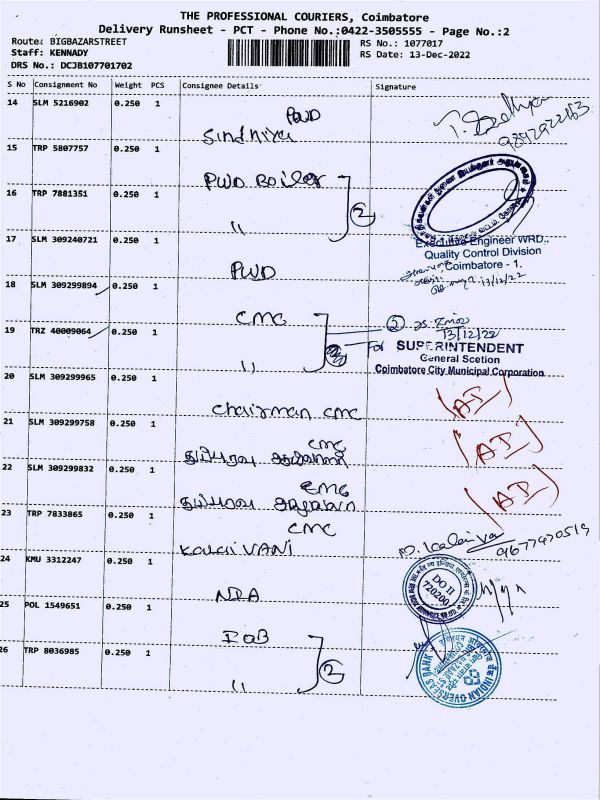 THE PROFESSIONAL COURIERS, Coimbatore
Delivery Runsheet - PCT - Phone No.:0422-3505555 - Page No.:2
Route: BIGBAZARSTREET
Staff: KENNADY
DRS No.: DCJB107701702
RS No.: 1077017
RS Date: 13-Dec-2022
S No Consignment No Weight PCS Consignee Details Signature
14 SLM 5216902 0.250 1 PWD
9842922163
15 TRP 5807757 0.250 1 PWD Boiler
16 TRP 7881351 0.250 1 "
2
Executive Engineer WRD.,
Quality Control Division
Coimbatore - 1.
13/12/22
17 SLM 309240721 0.250 1 PWD
18 SLM 309299894 0.250 1 CMC
2
13/12/22
19 TRZ 40009064 0.250 1 "
For SUPERINTENDENT
General Scetion
Coimbatore City Municipal Corporation
20 SLM 309299965 0.250 1 Chairman CMC
21 SLM 309299758 0.250 1 CMC
22 SLM 309299832 0.250 1 CMC
23 TRP 7833865 0.250 1 CMC
KalaiVANI
9677470519
24 KMU 3312247 0.250 1 NIA
DO II
720200
25 POL 1549651 0.250 1 IOB
26 TRP 8036985 0.250 1 "
2
INDIAN OVERSEAS BANK